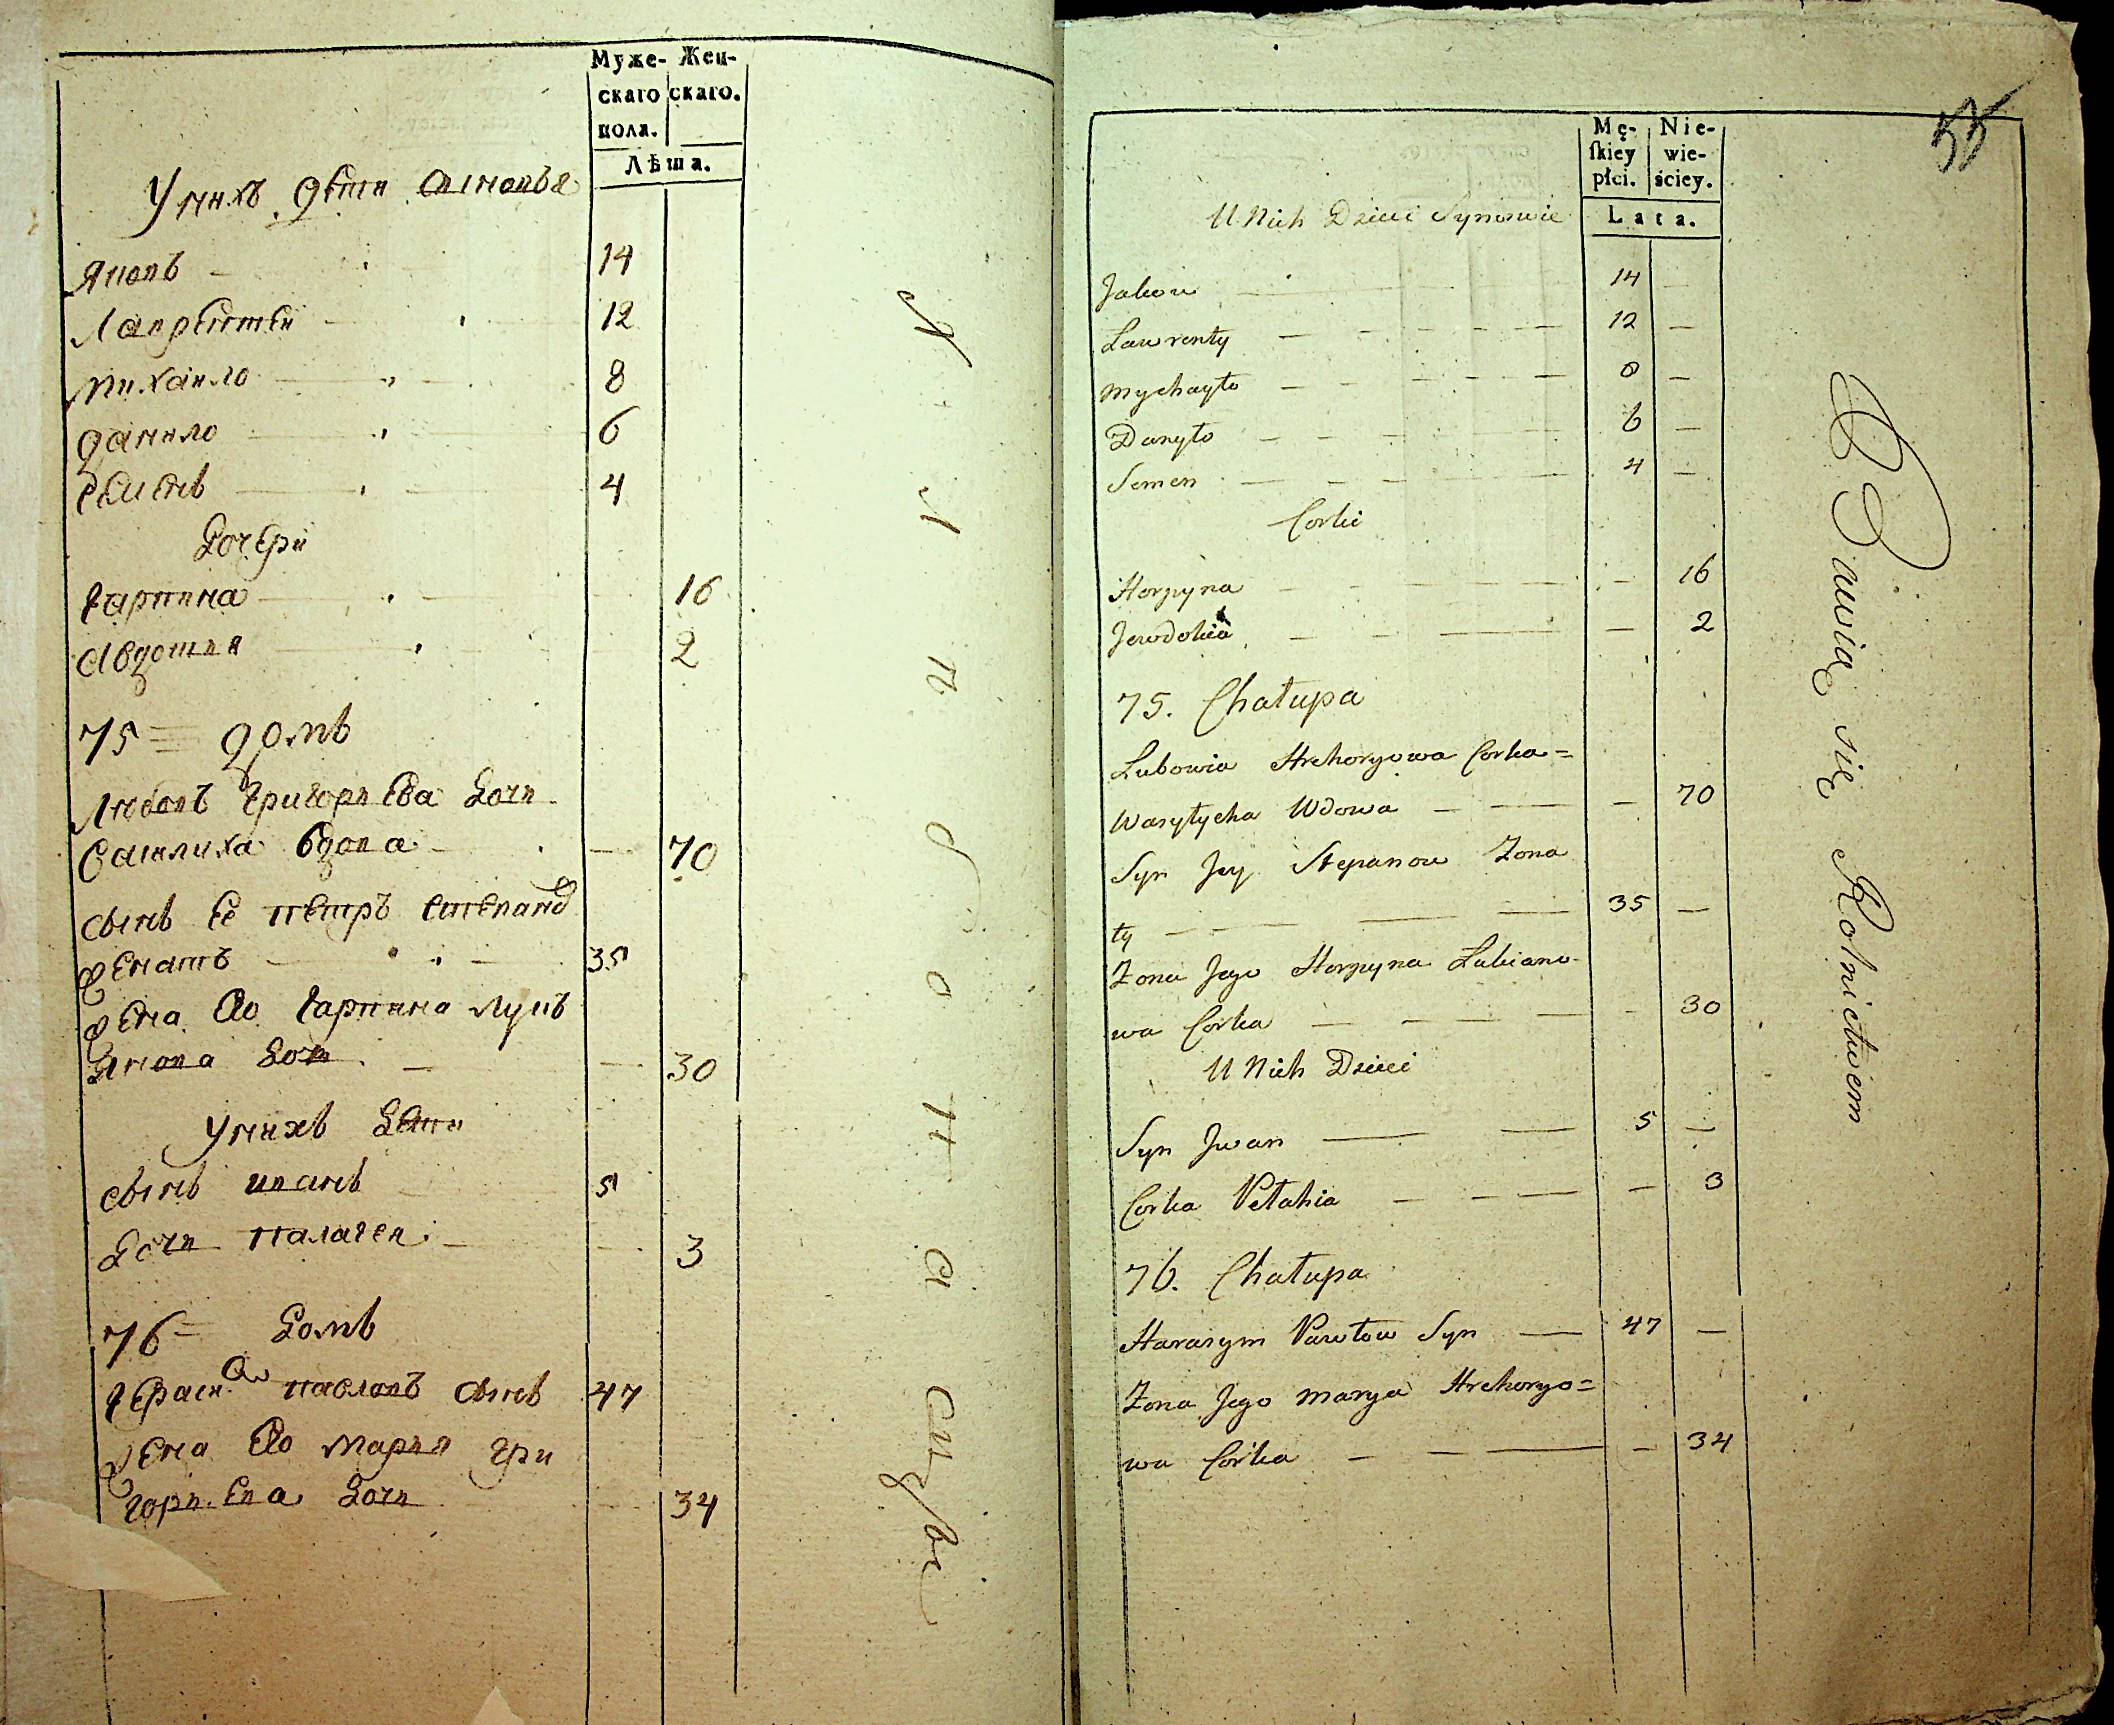 Муже- Жен-
скаго скаго.
пола.
Лѣта.
У нихъ дети сыновья
Яковъ 14
Лаврентей 12
Михайло 8
Данило 6
Семенъ 4
Дочери
Гарпина 16
Авдотья 2
75 домъ
Любовъ Григорьева дочь
Василиха вдова 70
сынъ Ее Петръ Степановъ
женатъ 35
жена его Гарпина Лукъ
янова дочь 30
У нихъ дети
сынъ Иванъ 5
дочь Палагея 3
76 домъ
Герасимъ Павловъ сынъ 47
жена его Марья Гри
горьева дочь 34
53
Mę- Nie-
skiey wie-
płci. ściey.
Lata.
U Nich Dzieci Synowie
Jakow 14
Lawrenty 12
Mychayło 8
Danyło 6
Semen 4
Corki
Horpyna 16
Jewdokia 2
75. Chałupa
Lubowia Hrehoryowa Corka=
Wasylycha Wdowa 70
Syn Jey Stepanow Zona
ty 35
Zona Jego Horpyna Lukiano-
wa Corka 30
U Nich Dzieci
Syn Jwan 5
Corka Pełahia 3
76. Chałupa
Harasym Pawłow Syn 47
Zona Jego Marya Hrehoryo=
wa Corka 34
Bawią się Rolnictwem